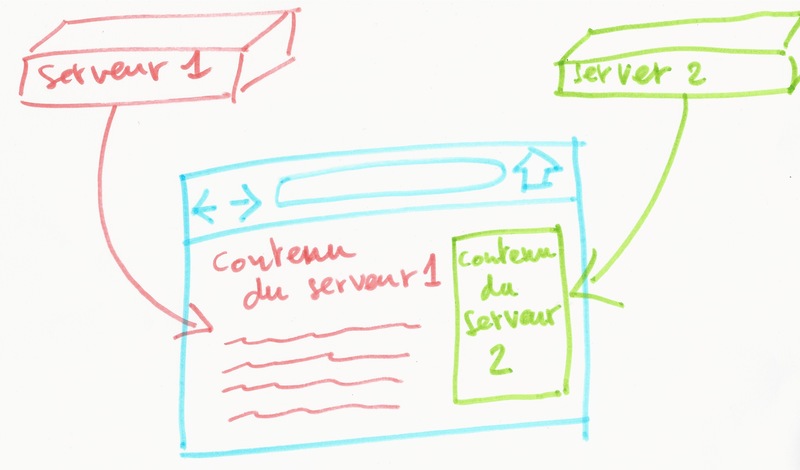 Serveur 1
Server 2
Contenu
du serveur 1
Contenu
du
serveur
2